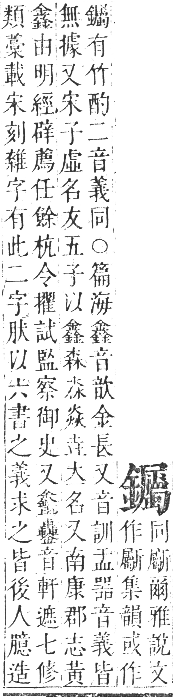 钃
同斸爾雅說文
作斸集韻或作
有竹酌二音義同○篇海鑫音歆金長又音訓盂器音義皆
無據又宋子虛名友五子以鑫森淼焱垚大名又南康郡志黃
鑫由明經辟薦任餘杭令擢試監察御史又音軒遮七修
類藁載宋刻雜字有此二字肰以六書之義求之皆後人臆造